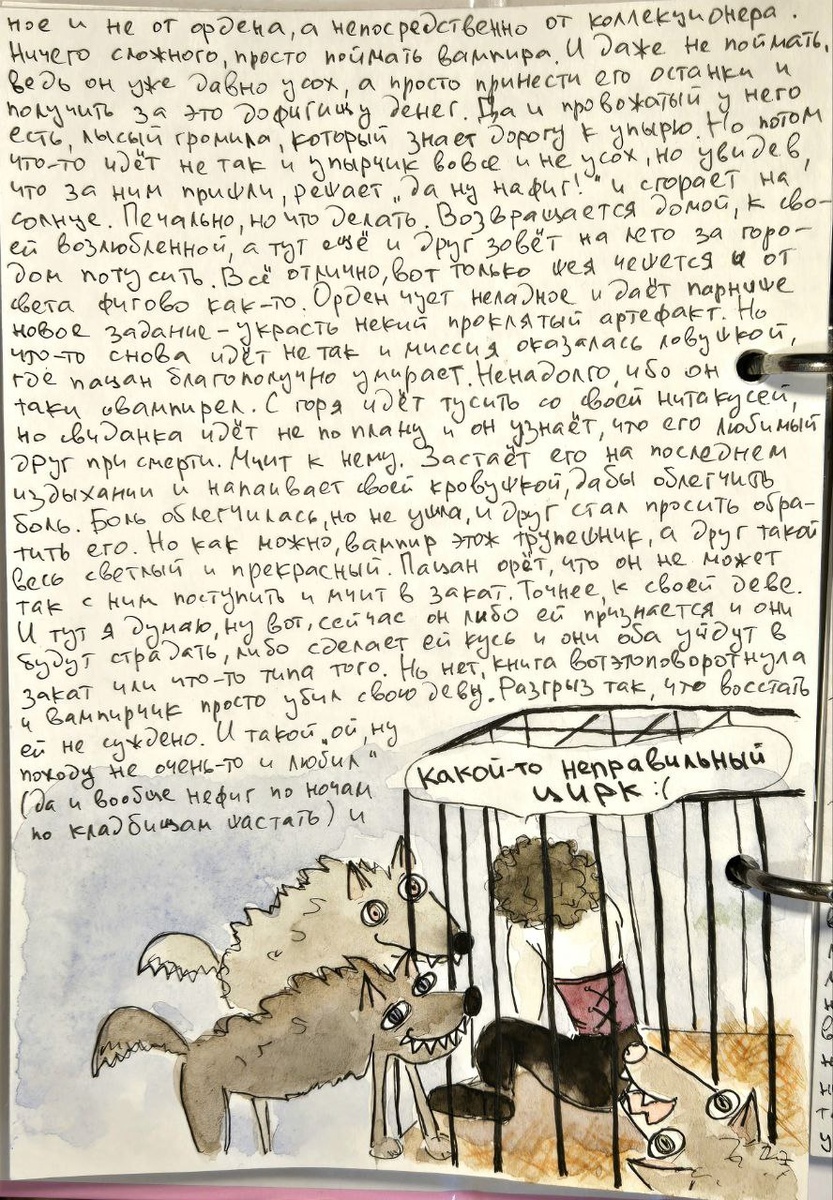 ное и не от ордена, а непосредственно от коллекционера.
Ничего сложного, просто поймать вампира. И даже не поймать,
ведь он уже давно усох, а просто принести его останки и
получить за это дофигищу денег. Да и провожатый у него
есть, лысый громила, который знает дорогу к упырю. Но потом
что-то идёт не так и упырчик вовсе и не усох, но увидев,
что за ним пришли, решает „да ну нафиг!“ и сгорает на
солнце. Печально, но что делать. Возвращается домой, к сво-
ей возлюбленной, а тут ещё и друг зовёт на лето за горо-
дом потусить. Всё отлично, вот только шея чешется и от
света фигово как-то. Орден чует неладное и даёт парнише
новое задание – украсть некий проклятый артефакт. Но
что-то снова идёт не так и миссия оказалась ловушкой,
где пацан благополучно умирает. Ненадолго, ибо он
таки овампирел. С горя идёт тусить со своей нитакусей,
но свиданка идёт не по плану и он узнаёт, что его любимый
друг при смерти. Мчит к нему. Застаёт его на последнем
издыхании и напаивает своей кровушкой, дабы облегчить
боль. Боль облегчилась, но не ушла, и друг стал просить обра-
тить его. Но как можно, вампир этож трупешник, а друг такой
весь светлый и прекрасный. Пацан орёт, что он не может
так с ним поступить и мчит в закат. Точнее, к своей деве.
И тут я думаю, ну вот, сейчас он либо ей признается и они
будут страдать, либо сделает ей кусь и они оба уйдут в
закат или что-то типа того. Но нет, книга вотэтоповоротнула
и вампирчик просто убил свою деву. Разгрыз так, что восстать
ей не суждено. И такой „ой, ну
походу не очень-то и любил“
(да и вообще нефиг по ночам
по кладбищам шастать) и
какой-то неправильный
цирк :(